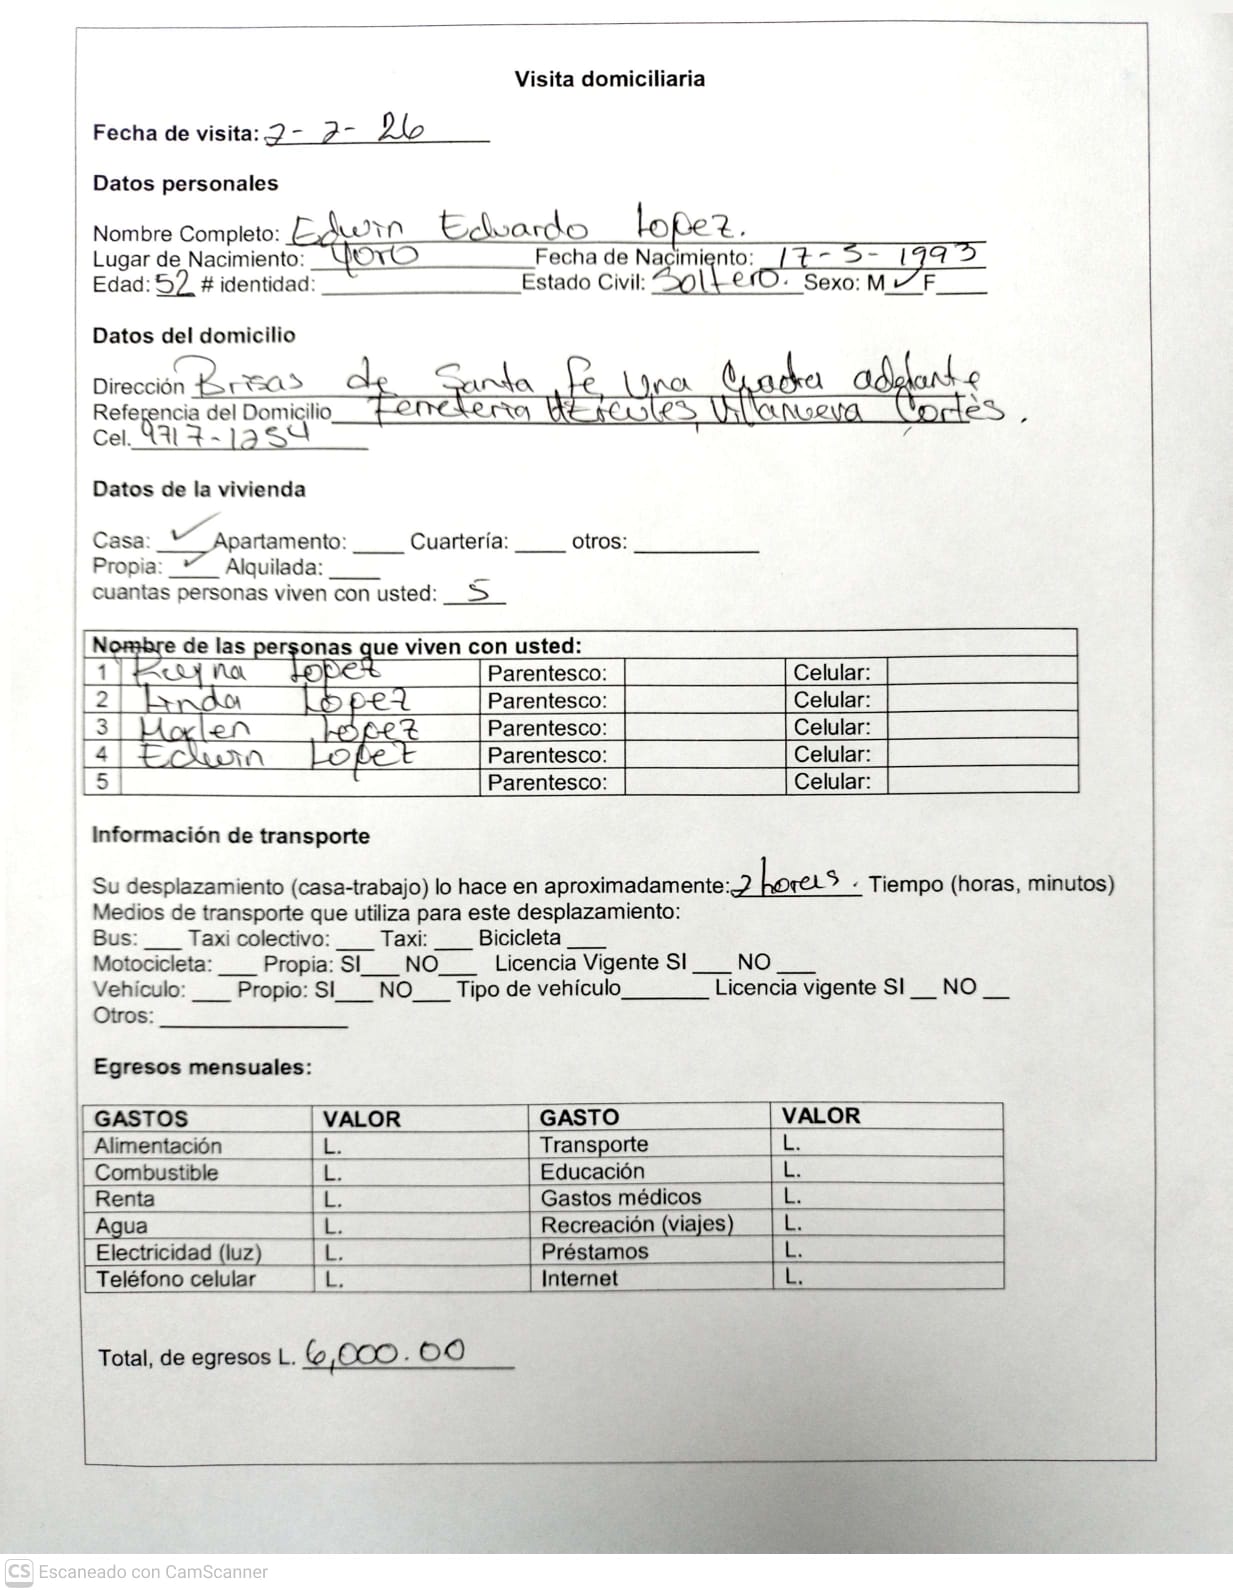 Visita domiciliaria
Fecha de visita: 2-2-26
Datos personales
Nombre Completo: Edwin Eduardo Lopez.
Lugar de Nacimiento: Yoro Fecha de Nacimiento: 17-5-1993
Edad: 52 # identidad: ____ Estado Civil: Soltero. Sexo: M ✓ F____
Datos del domicilio
Dirección Brisas de Santa fe, Una Cuadra adelante
Referencia del Domicilio Ferreteria Hercules, Villanueva Cortès.
Cel. 9717-1254
Datos de la vivienda
Casa: ✓ Apartamento: ____ Cuartería: ____ otros: ____
Propia: ✓ Alquilada: ____
cuantas personas viven con usted: 5
Nombre de las personas que viven con usted:
1 Reyna Lopez Parentesco: Celular:
2 Linda Lopez Parentesco: Celular:
3 Marlen Lopez Parentesco: Celular:
4 Edwin Lopez Parentesco: Celular:
5 Parentesco: Celular:
Información de transporte
Su desplazamiento (casa-trabajo) lo hace en aproximadamente: 2 horas. Tiempo (horas, minutos)
Medios de transporte que utiliza para este desplazamiento:
Bus: ____ Taxi colectivo: ____ Taxi: ____ Bicicleta ____
Motocicleta: ____ Propia: SI____ NO____ Licencia Vigente SI ____ NO ____
Vehículo: ____ Propio: SI____ NO____ Tipo de vehículo____ Licencia vigente SI __ NO __
Otros: ____
Egresos mensuales:
GASTOS VALOR GASTO VALOR
Alimentación L. Transporte L.
Combustible L. Educación L.
Renta L. Gastos médicos L.
Agua L. Recreación (viajes) L.
Electricidad (luz) L. Préstamos L.
Teléfono celular L. Internet L.
Total, de egresos L. 6,000.00
CS Escaneado con CamScanner